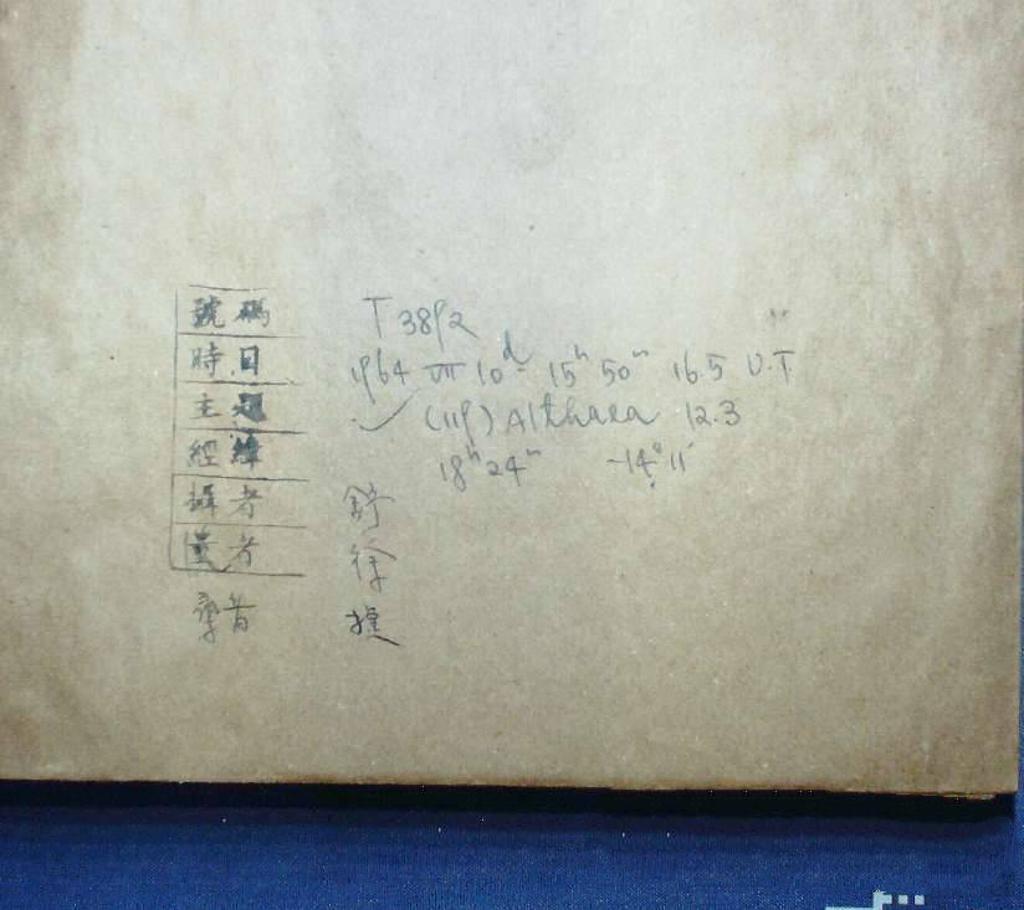 號碼 T 3892
時日 1964 VII 10ᵈ 15ʰ 50ᵐ 16.5 U.T
主題 (119) Althaea 12.3
經緯 18ʰ 24ᵐ -14° 11'
攝者 舒
量者 徐
者